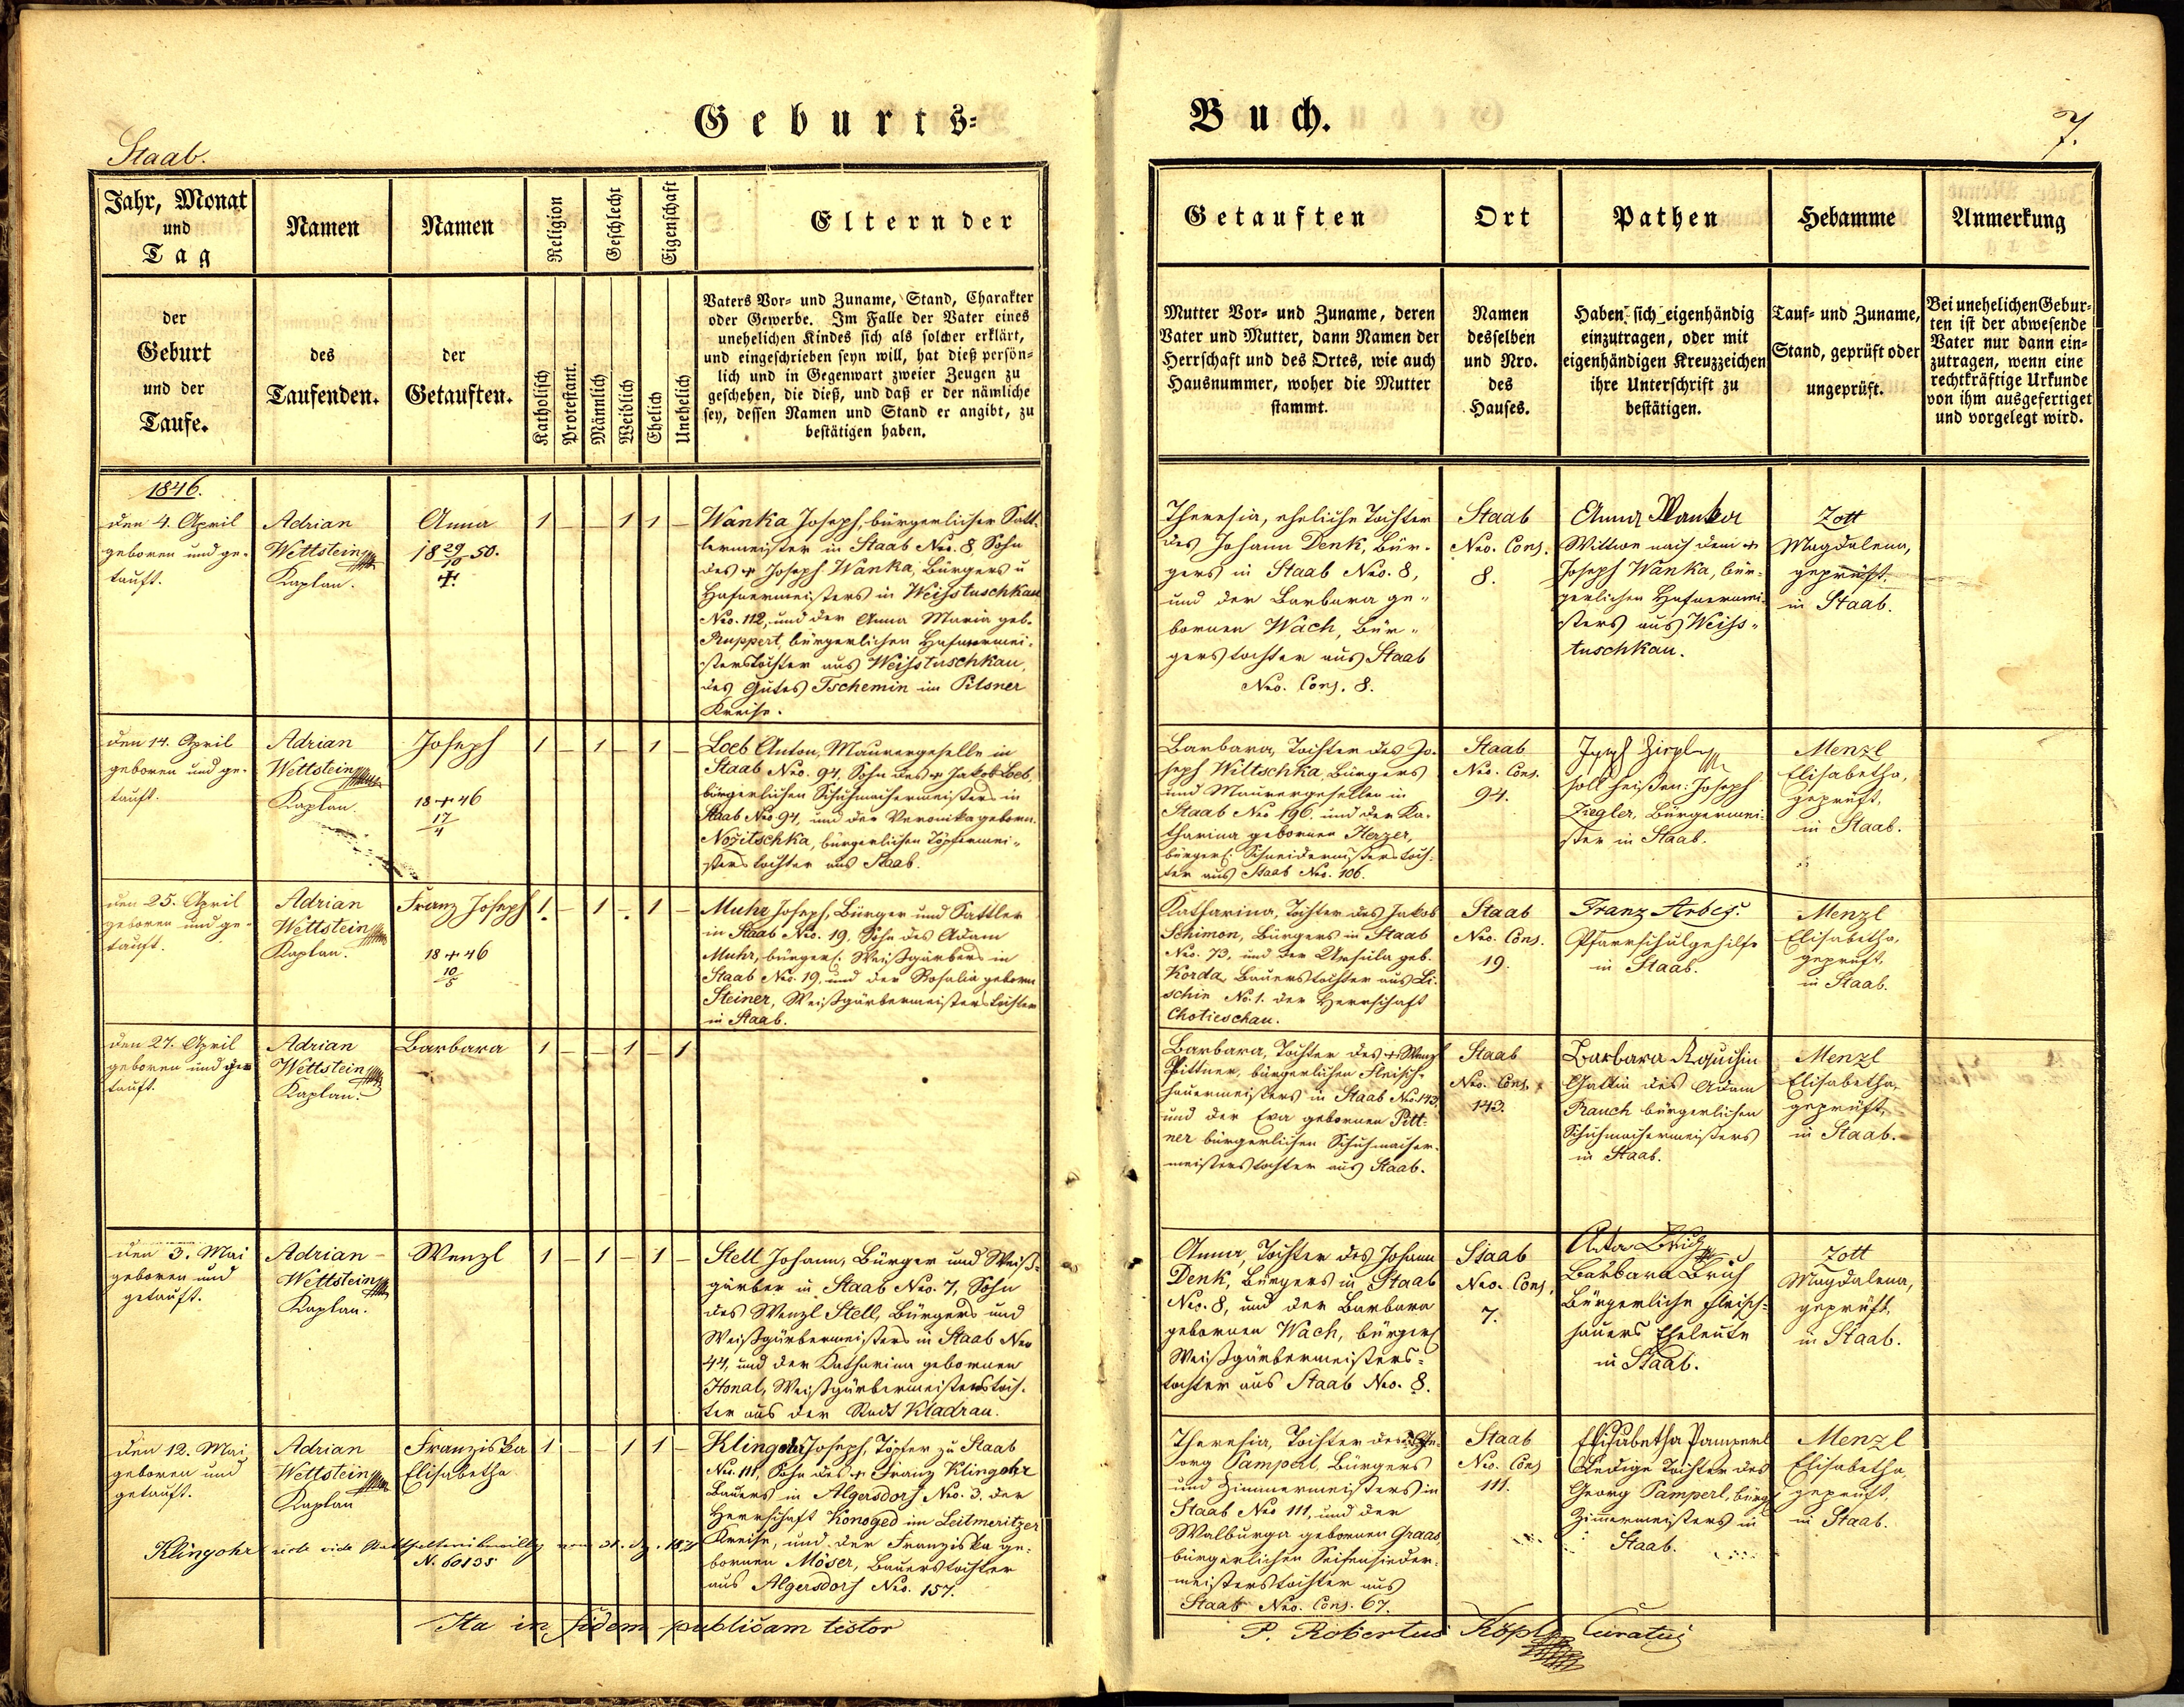 Geburts-
Buch.
7.
Staab.
Jahr, Monat
und
Tag
Namen
Namen
Religion
Geschlecht
Eigenschaft
Eltern der
Getauften
Ort
Pathen
Hebamme
Anmerkung
der
Geburt
und der
Taufe.
des
Taufenden.
der
Getauften.
Katholisch
Protestant.
Männlich
Weiblich
Ehelich
Unehelich
Vaters Vor- und Zuname, Stand, Charakter
oder Gewerbe. Im Falle der Vater eines
unehelichen Kindes sich als solcher erklärt,
und eingeschrieben seyn will, hat dieß persön-
lich und in Gegenwart zweier Zeugen zu
geschehen, die dieß, und daß er der nämliche
sey, dessen Namen und Stand er angibt, zu
bestätigen haben.
Mutter Vor- und Zuname, deren
Vater und Mutter, dann Namen der
Herrschaft und des Ortes, wie auch
Hausnummer, woher die Mutter
stammt.
Namen
desselben
und Nro.
des
Hauses.
Haben sich eigenhändig
einzutragen, oder mit
eigenhändigen Kreuzzeichen
ihre Unterschrift zu
bestätigen.
Tauf- und Zuname,
Stand, geprüft oder
ungeprüft.
Bei unehelichen Gebur-
ten ist der abwesende
Vater nur dann ein-
zutragen, wenn eine
rechtkräftige Urkunde
von ihm ausgefertiget
und vorgelegt wird.
1846.
den 4. April
geboren und ge-
tauft.
Adrian
Wettstein
Kaplan.
Anna
18 29/10 50.
†
1 — — 1 1 —
Wanka Joseph, bürgerlicher Satt-
lermeister in Staab Nro. 8, Sohn
des † Joseph Wanka, Bürgers u
Hafnermeisters in Weisstuschkau
Nro. 112, und der Anna Maria geb.
Ruppert, bürgerlichen Hafnermei-
sterstochter aus Weisstuschkau,
des Gutes Tschemin im Pilsner
Kreise.
Theresia, eheliche Tochter
des Johann Denk, Bür-
gers in Staab Nro. 8,
und der Barbara ge-
bornen Wach, Bür-
gerstochter aus Staab
Nro. Cons. 8.
Staab
Nro. Cons.
8.
Anna Wanka
Wittwe nach dem †
Joseph Wanka, bür-
gerlichen Hafnermei-
sters aus Weiss-
tuschkau.
Zott
Magdalena,
geprüft,
in Staab.
den 14. April
geboren und ge-
tauft.
Adrian
Wettstein
Kaplan.
Joseph
18 + 46
17/4
1 — 1 — 1 —
Loeb Anton, Maurergeselle in
Staab Nro. 94, Sohn des † Jakob Loeb,
bürgerlichen Schuhmachermeisters in
Staab Nro 94, und der Veronika geborn.
Nozitschka, bürgerlichen Töpfermei-
sterstochter aus Staab.
Barbara, Tochter des Jo-
seph Wiltschka, Bürgers
und Maurergesellen in
Staab Nro 196. und der Ka-
tharina gebornen Herzer,
bürgerl. Schneidermeisterstoch-
ter aus Staab Nro. 106.
Staab
Nro. Cons.
94.
soll heißen: Joseph
Ziegler, Bürgermei-
ster in Staab.
Menzl
Elisabetha,
geprüft,
in Staab.
den 25. April
geboren und ge-
tauft.
Adrian
Wettstein
Kaplan.
Franz Joseph
18 + 46
10/5
1 — 1 — 1 —
Muhr Joseph, Bürger und Sattler
in Staab Nro. 19, Sohn des Adam
Muhr, bürgerl. Weißgärbers in
Staab Nro. 19, und der Rosalia geborn
Steiner, Weißgärbermeisterstochter
in Staab.
Katharina, Tochter des Jakob
Schimon, Bürgers in Staab
Nro. 73, und der Ursula geb.
Korda, Bauerstochter aus Li-
schin No. 1. der Herrschaft
Chotieschau.
Staab
Nro. Cons.
19.
Franz Arbes.
Pfarrschulgehilfe
in Staab.
Menzl
Elisabetha,
geprüft,
in Staab.
den 27. April
geboren und ge-
tauft.
Adrian
Wettstein
Kaplan.
Barbara
1 — — 1 — 1
Barbara, Tochter des † Wenzl
Pittner, bürgerlichen Fleisch-
hauermeisters in Staab Nro. 143,
und der Eva gebornen Pitt-
ner bürgerlichen Schuhmacher-
meisterstochter aus Staab.
Staab
Nro. Cons.
143.
Barbara
Gattin des Adam
Rauch bürgerlichen
Schuhmachermeisters
in Staab.
Menzl
Elisabetha,
geprüft,
in Staab.
den 3. Mai
geboren und
getauft.
Adrian
Wettstein
Kaplan.
Wenzl
1 — 1 — 1 —
Stell Johann, Bürger und Weiß-
gärber in Staab Nro. 7, Sohn
des Wenzl Stell, Bürgers und
Weißgärbermeisters in Staab Nro
44, und der Katharina gebornen
Honal, Weißgärbermeisterstoch-
ter aus der Stadt Kladrau.
Anna, Tochter des Johann
Denk, Bürgers in Staab
Nro. 8, und der Barbara
gebornen Wach, bürgerl
Weißgärbermeisters-
tochter aus Staab Nro. 8.
Staab
Nro. Cons.
7.
Barbara Bruch
Bürgerliche Fleisch-
hauers Eheleute
in Staab.
Zott
Magdalena,
geprüft,
in Staab.
den 12. Mai
geboren und
getauft.
Adrian
Wettstein
Kaplan
Franziska
Elisabetha
1 — — 1 1 —
Klingohr Joseph, Töpfer zu Staab
Nro. 111, Sohn des † Franz Klingohr
Bauers in Algersdorf Nro. 3. der
Herrschaft Konoged im Leitmeritzer
Kreise, und der Franziska ge-
bornen Möser, Bauerstochter
aus Algersdorf Nro. 157.
Theresia, Tochter des Ge-
org Pamperl, Bürgers
und Zimmermeisters in
Staab Nro 111, und der
Walburga gebornen Graas,
bürgerlichen Seifensieder-
meisterstochter aus
Staab Nro. Cons. 67.
Staab
Nro. Cons
111.
Elisabetha Pamperl
Ledige Tochter des
Georg Pamperl, bürgl
Zimmermeisters in
Staab.
Menzl
Elisabetha,
geprüft,
in Staab.
Klingohr
N. 60135
Ita in fidem publicam testor
P. Robertus Köpl Curatus